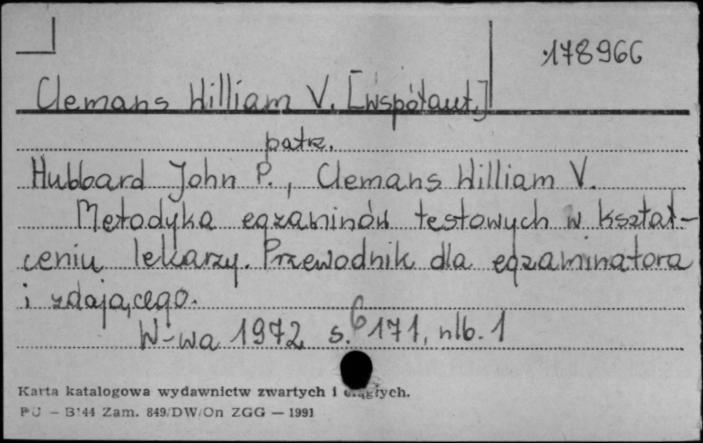 178966
Clemans William V. [współaut.]
patrz.
Hubbard John P., Clemans William V.
Metodyka egzaminów testowych w kształ-
ceniu lekarzy. Przewodnik dla egzaminatora
i zdającego.
W-wa 1972 s. 6 171, nlb. 1
Karta katalogowa wydawnictw zwartych i ciągłych.
PU - B*44 Zam. 849/DW/On ZGG — 1991